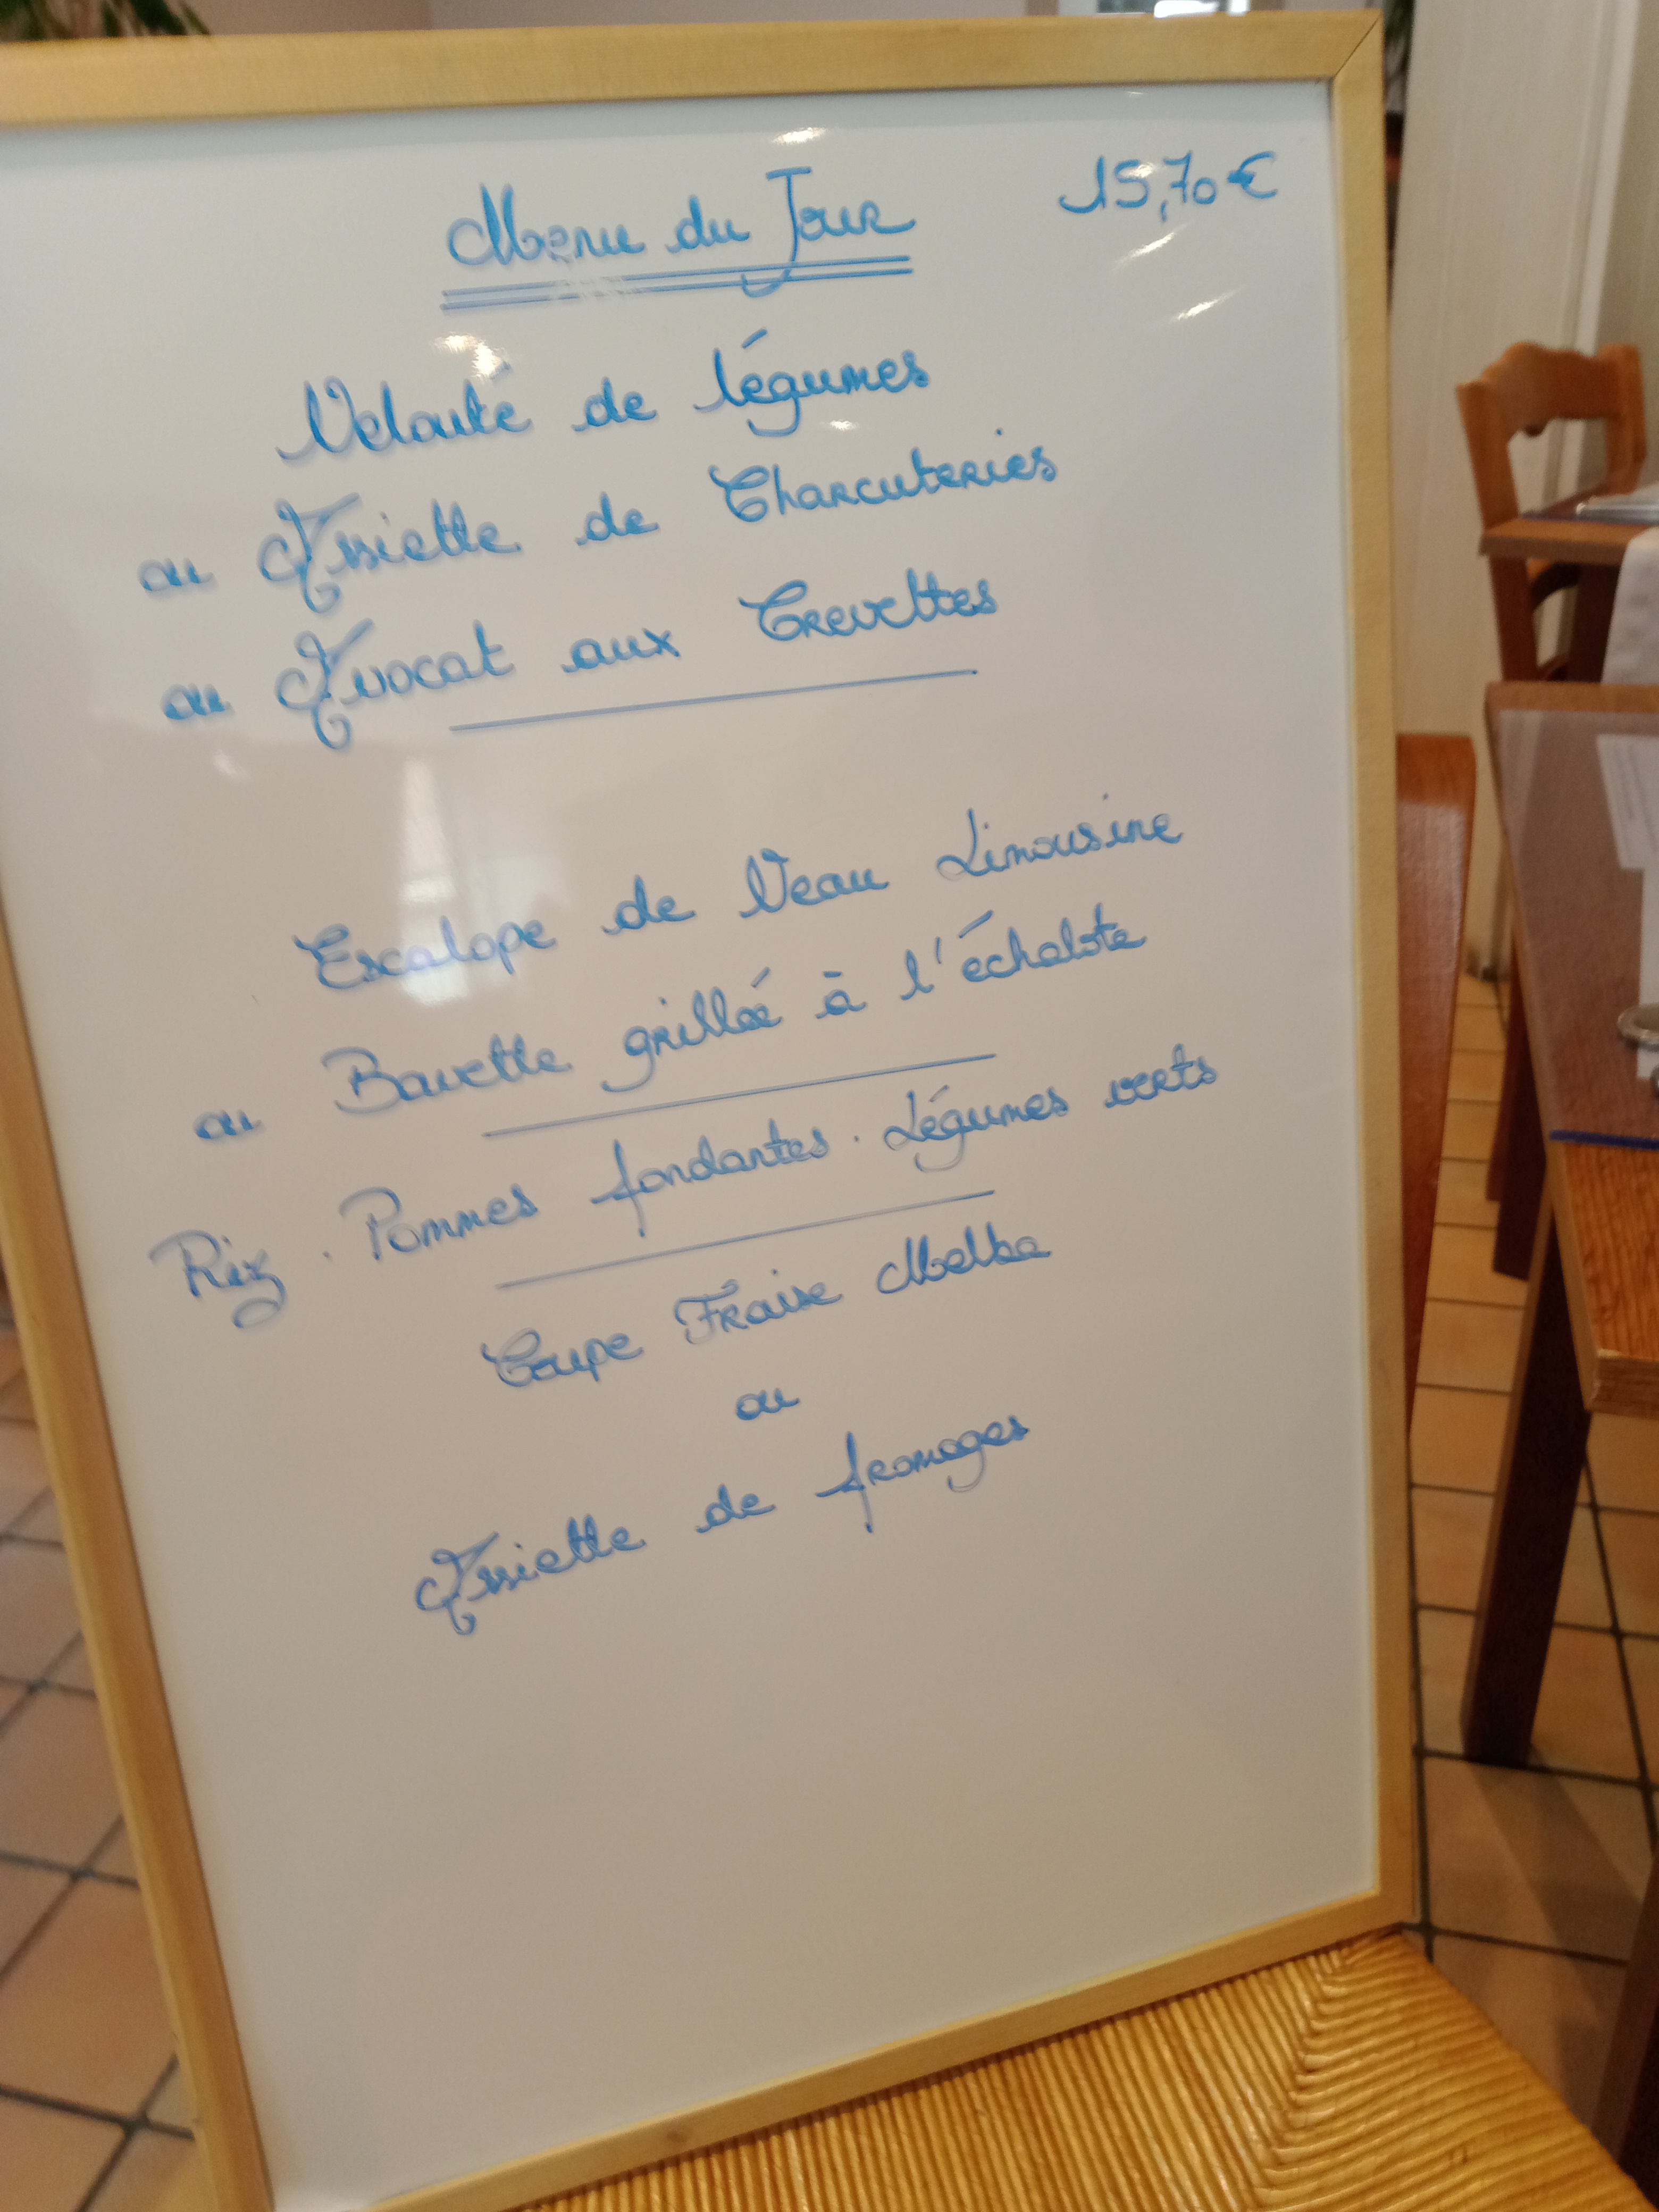 Menu du Jour 15,70 €
Velouté de légumes
ou Assiette de Charcuteries
ou Avocat aux Crevettes
Escalope de Veau Limousine
ou Bavette grillée à l'échalote
Riz . Pommes fondantes . Légumes verts
Coupe Fraise Melba
ou
Assiette de fromages